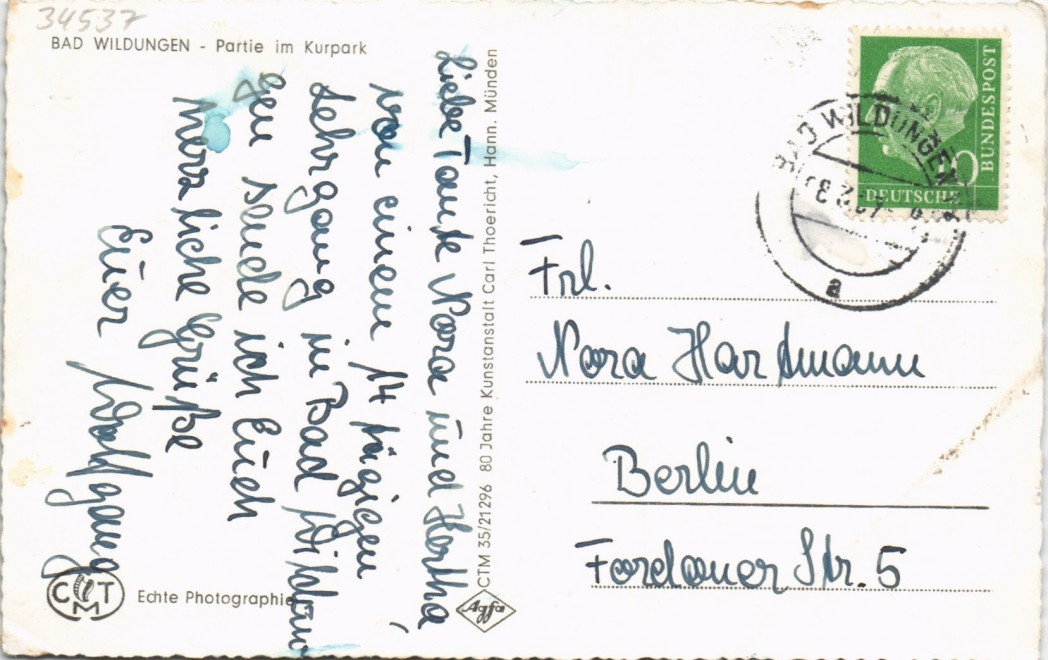 34537
BAD WILDUNGEN - Partie im Kurpark
Liebe Tante Nora und Hertha
von einem 14 tägigen
Lehrgang in Bad Wildun
gen sende ich Euch
Herzliche Grüße
Euer Wolfgang
CTM 35/21296 80 Jahre Kunstanstalt Carl Thoericht, Hann. Münden
CMT
Echte Photographie
Agfa
DEUTSCHE
BUNDESPOST
BAD WILDUNGEN
a
Frl.
Nora Hartmann
Berlin
Fordoner Str. 5